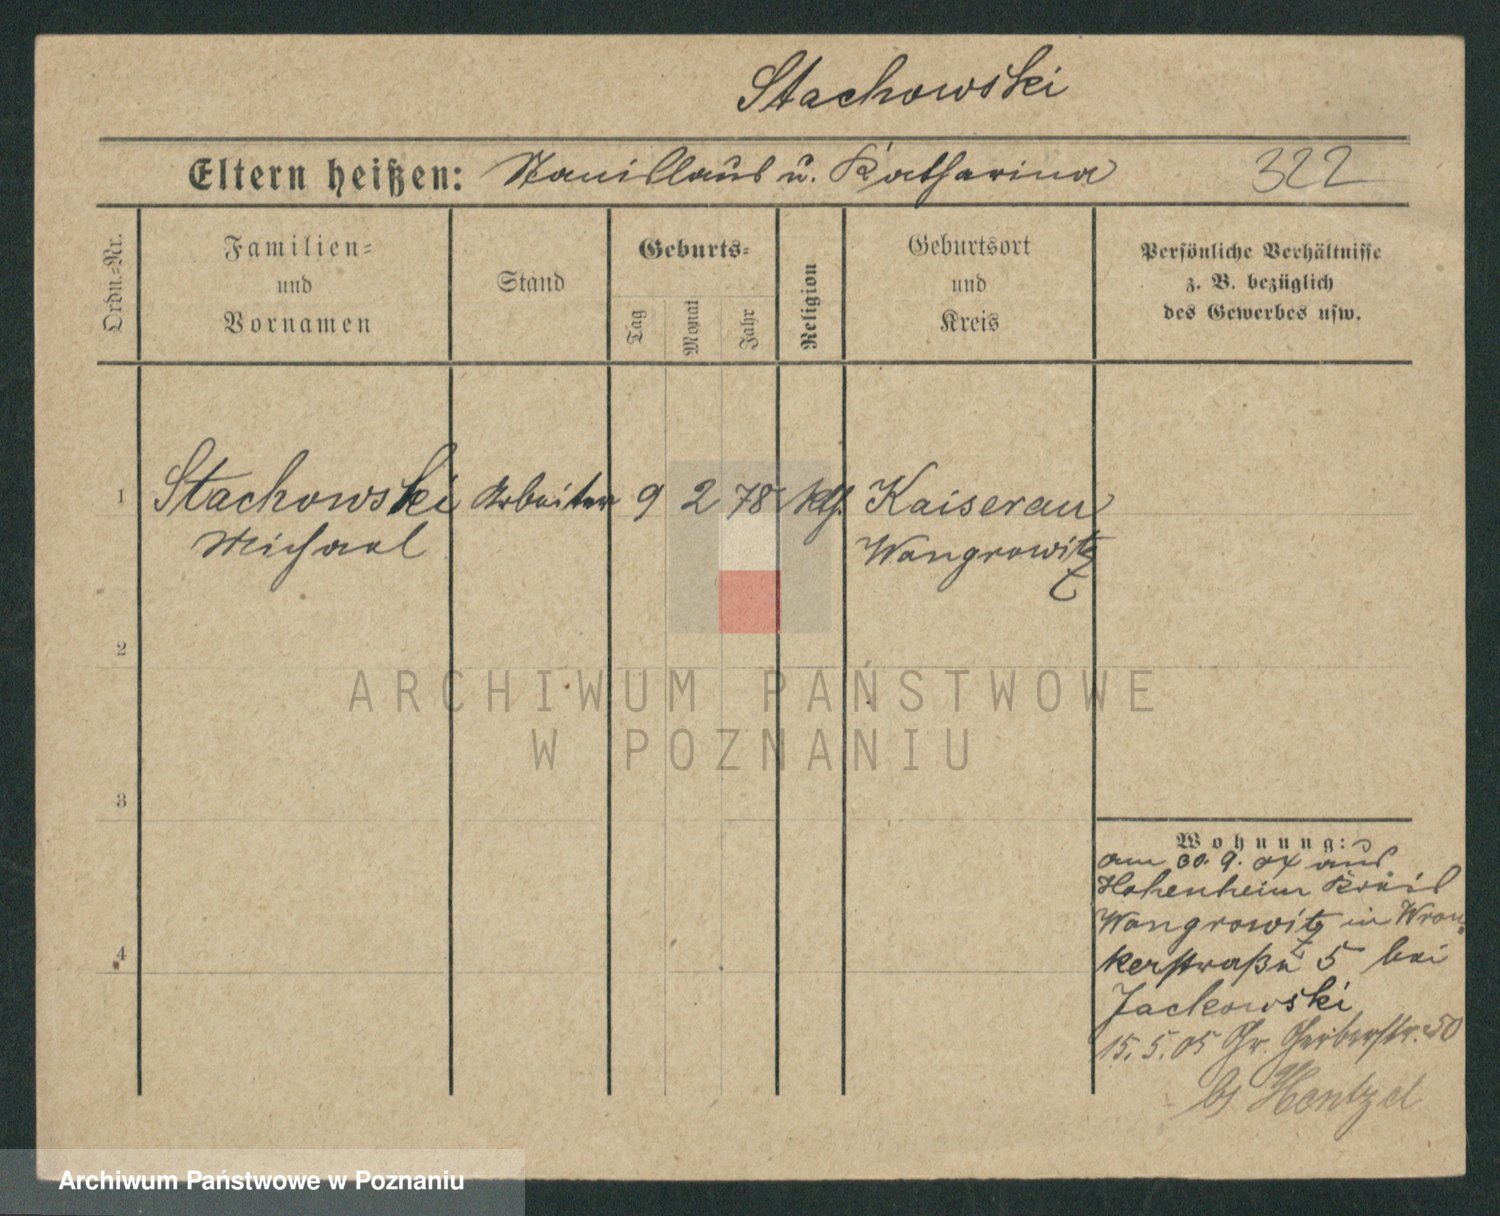 Stachowski
Eltern heißen: Stanislaus u. Katharina 322
Ordn.=Nr.
Familien=
und
Vornamen
Stand
Geburts=
Tag
Monat
Jahr
Religion
Geburtsort
und
Kreis
Persönliche Verhältnisse
z. B. bezüglich
des Gewerbes usw.
1 Stachowski Arbeiter 9 2 78 kth. Kaiserau
Michael Wongrowitz
2
ARCHIWUM PAŃSTWOWE
W POZNANIU
3
4
Wohnung:
am 30. 9. 04 aus
Hohenheim Kreis
Wongrowitz in Wron
kerstraße 5 bei
Jackowski
15. 5. 05 Gr. Gerberstr. 50
bei Hentzel
Archiwum Państwowe w Poznaniu